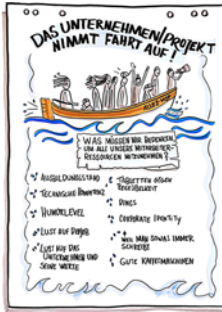 DAS UNTERNEHMEN/PROJEKT
NIMMT FAHRT AUF!
WAS MÜSSEN WIR BEDENKEN,
UM ALLE UNSERE MITARBEITER-
RESSOURCEN MITZUNEHMEN?
AUSBILDUNGSSTAND
TECHNISCHE KOMPETENZ
HUMORLEVEL
LUST AUF
LUST AUF DAS
UNTERNEHMEN UND
SEINE WERTE
TABLETTEN GEGEN
DINGS
CORPORATE IDENTITY
WAS MAN SOWAS IMMER
SCHREIBT
GUTE KAFFEEMASCHINEN